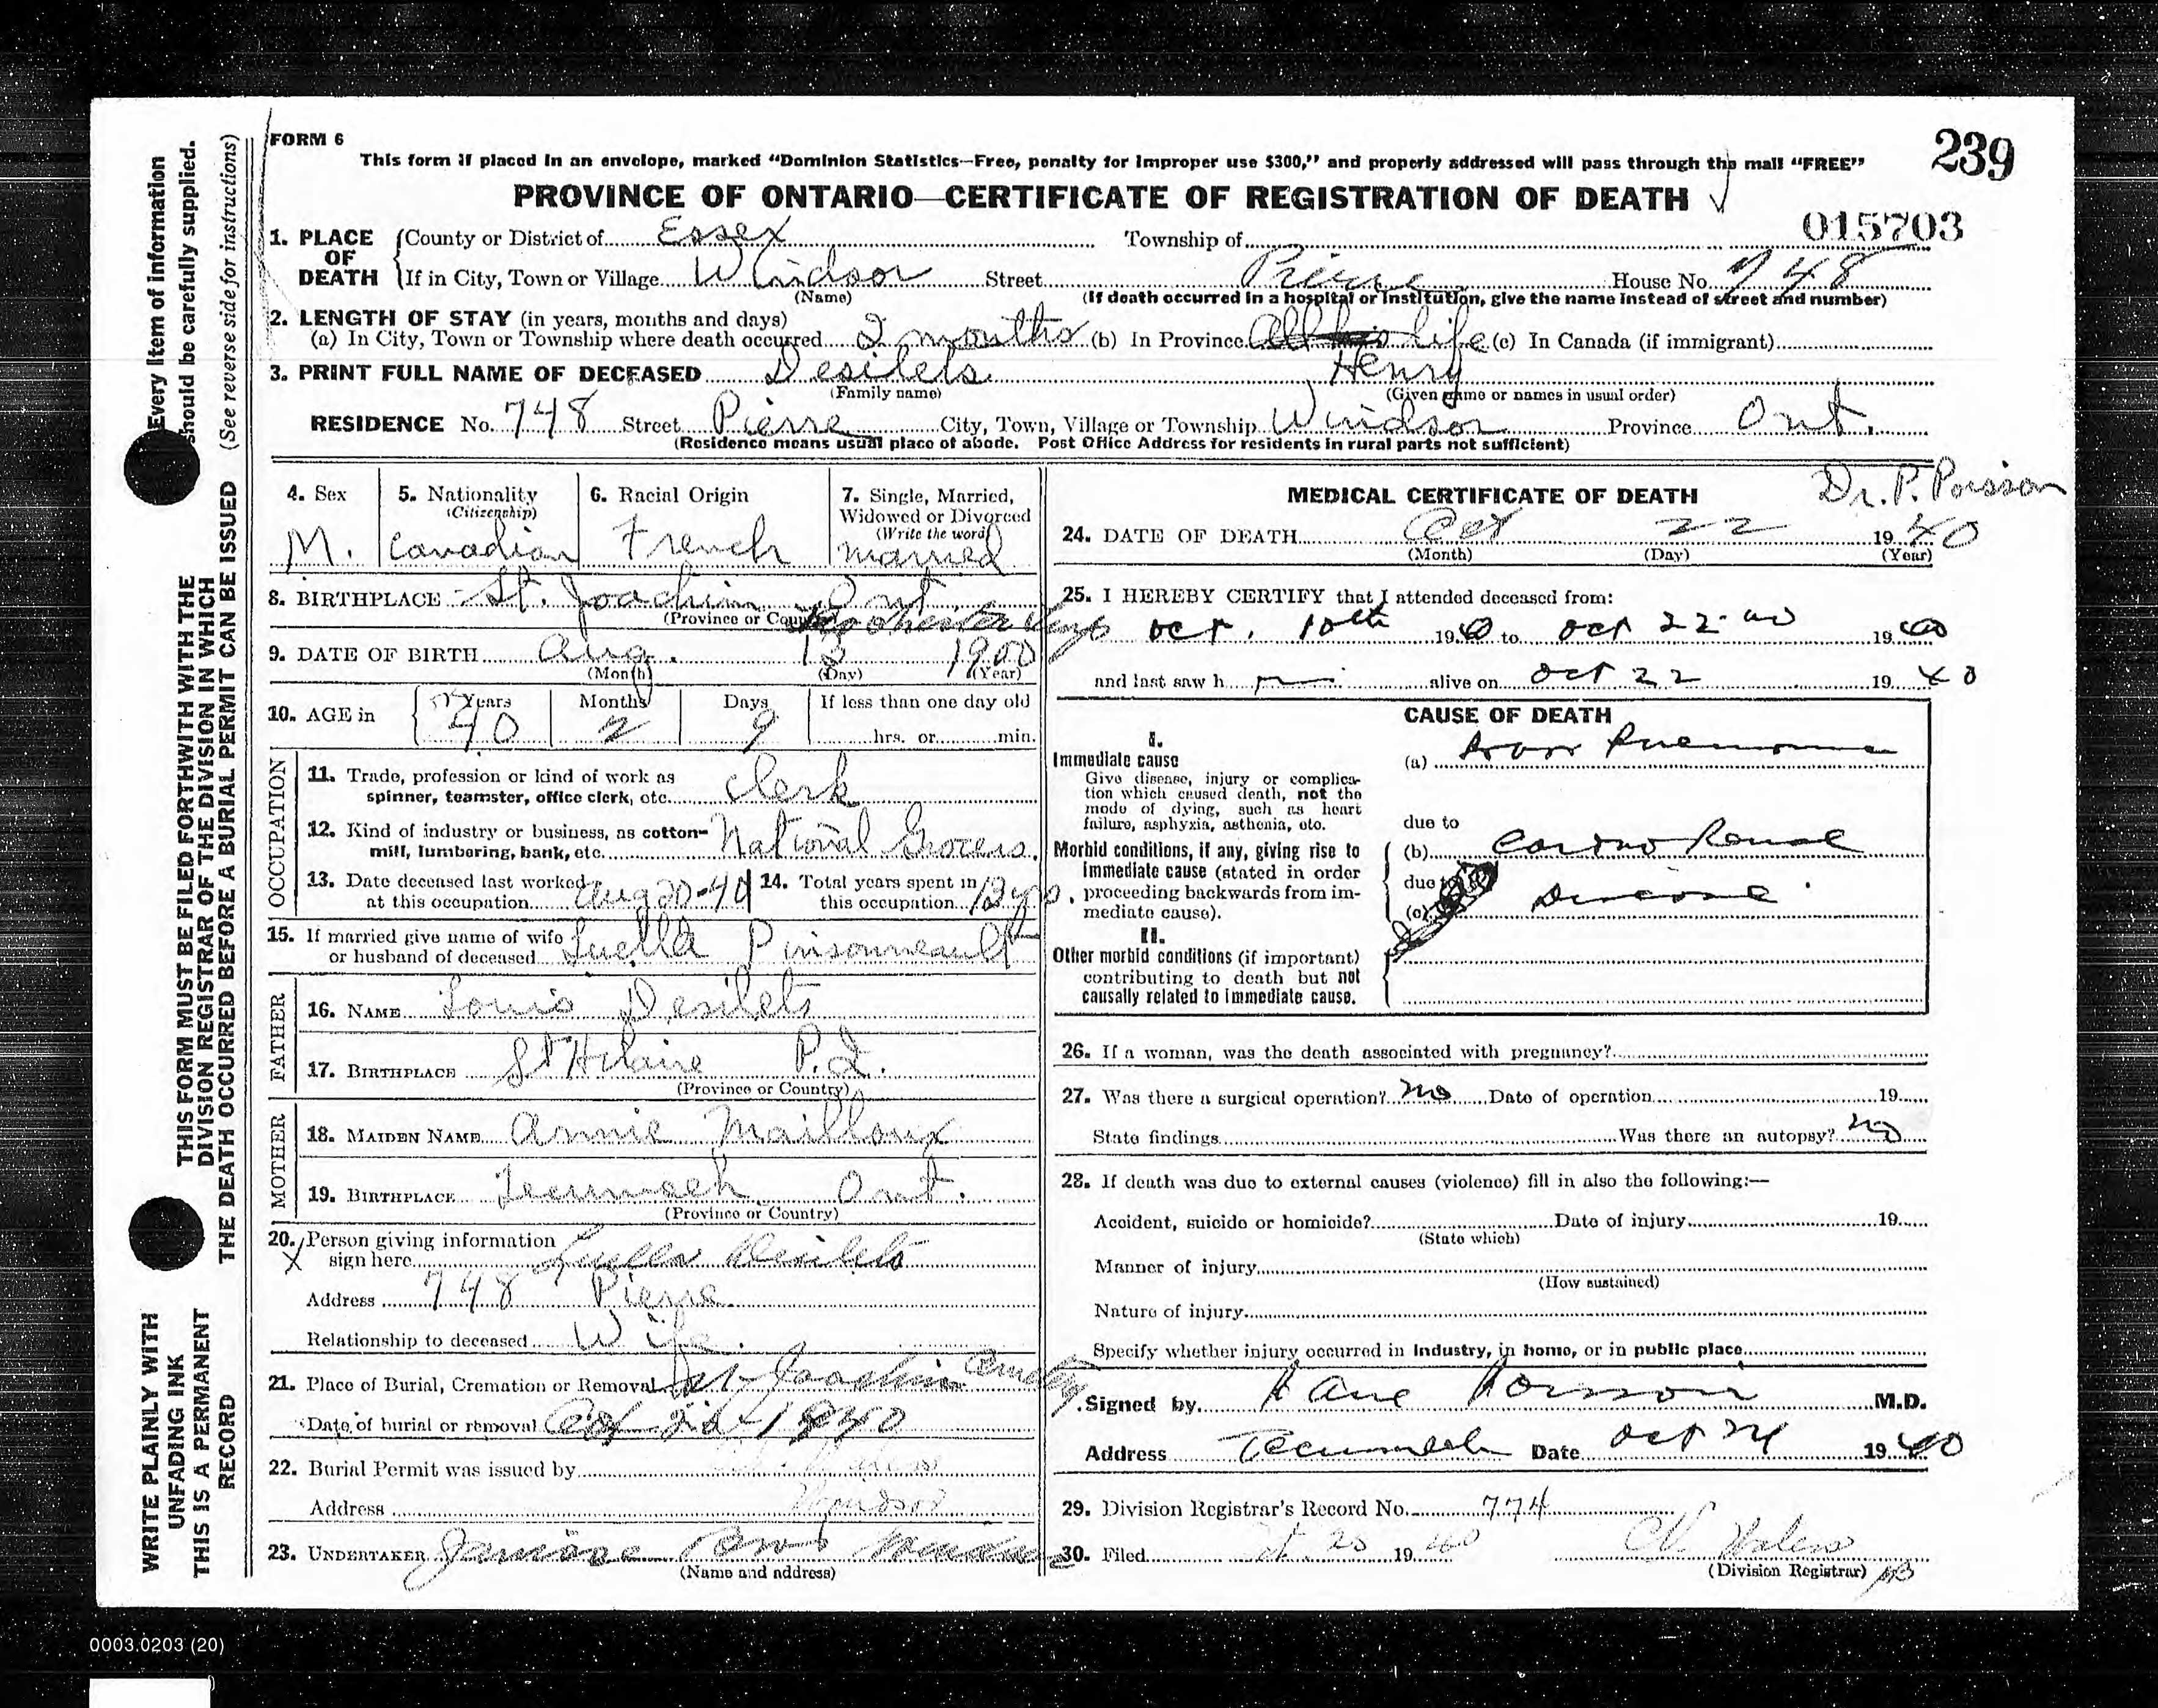 FORM 6
239
This form if placed in an envelope, marked "Dominion Statistics—Free, penalty for improper use $300," and properly addressed will pass through the mail "FREE"
PROVINCE OF ONTARIO—CERTIFICATE OF REGISTRATION OF DEATH
015703
1. PLACE OF DEATH County or District of Essex Township of
If in City, Town or Village Windsor Street Pierre House No. 748
(Name) (If death occurred in a hospital or institution, give the name instead of street and number)
2. LENGTH OF STAY (in years, months and days)
(a) In City, Town or Township where death occurred 2 months (b) In Province All life (c) In Canada (if immigrant)
3. PRINT FULL NAME OF DECEASED Desilets Henry
(Family name) (Given name or names in usual order)
RESIDENCE No. 748 Street Pierre City, Town, Village or Township Windsor Province Ont.
(Residence means usual place of abode. Post Office Address for residents in rural parts not sufficient)
4. Sex M.
5. Nationality (Citizenship) Canadian
6. Racial Origin French
7. Single, Married, Widowed or Divorced (Write the word) married
8. BIRTHPLACE St. Joachim Ont
(Province or Country) Rochester Twp
9. DATE OF BIRTH Aug. 13 1900
(Month) (Day) (Year)
10. AGE in Years 40 Months 2 Days 9 If less than one day old hrs. or min.
OCCUPATION
11. Trade, profession or kind of work as
spinner, teamster, office clerk, etc. Clerk
12. Kind of industry or business, as cotton-
mill, lumbering, bank, etc. National Grocers.
13. Date deceased last worked
at this occupation Aug 20-40
14. Total years spent in
this occupation 13 yrs.
15. If married give name of wife
or husband of deceased Luella Pinsonneault
FATHER
16. NAME Louis Desilets
17. BIRTHPLACE St Hilaire P.Q.
(Province or Country)
MOTHER
18. MAIDEN NAME Annie Mailloux
19. BIRTHPLACE Tecumseh Ont.
(Province or Country)
20. Person giving information
X sign here Luella Desilets
Address 748 Pierre
Relationship to deceased Wife.
21. Place of Burial, Cremation or Removal St Joachim Cemetery
Date of burial or removal Oct 1940
22. Burial Permit was issued by
Address Windsor
23. UNDERTAKER Janisse Bros Windsor
(Name and address)
MEDICAL CERTIFICATE OF DEATH Dr. P. Poisson
24. DATE OF DEATH Oct 22 1940
(Month) (Day) (Year)
25. I HEREBY CERTIFY that I attended deceased from:
Oct. 10th 1940 to Oct 22 1940
and last saw h m alive on Oct 22 1940
CAUSE OF DEATH
I.
Immediate cause
Give disease, injury or complica-
tion which caused death, not the
mode of dying, such as heart
failure, asphyxia, asthenia, etc.
(a) Pneumonia
due to
Morbid conditions, if any, giving rise to
immediate cause (stated in order
proceeding backwards from im-
mediate cause).
(b) Cardio Renal
due to
(c) Disease
II.
Other morbid conditions (if important)
contributing to death but not
causally related to immediate cause.
26. If a woman, was the death associated with pregnancy?
27. Was there a surgical operation? no Date of operation 19
State findings Was there an autopsy? no
28. If death was due to external causes (violence) fill in also the following:—
Accident, suicide or homicide? Date of injury 19
(State which)
Manner of injury
(How sustained)
Nature of injury
Specify whether injury occurred in industry, in home, or in public place
Signed by Poisson M.D.
Address Tecumseh Date Oct 24 1940
29. Division Registrar's Record No. 774
30. Filed 25 1940
(Division Registrar)
Every item of information
should be carefully supplied.
(See reverse side for instructions)
THIS FORM MUST BE FILED FORTHWITH WITH THE
DIVISION REGISTRAR OF THE DIVISION IN WHICH
THE DEATH OCCURRED BEFORE A BURIAL PERMIT CAN BE ISSUED
WRITE PLAINLY WITH
UNFADING INK
THIS IS A PERMANENT
RECORD
0003.0203 (20)